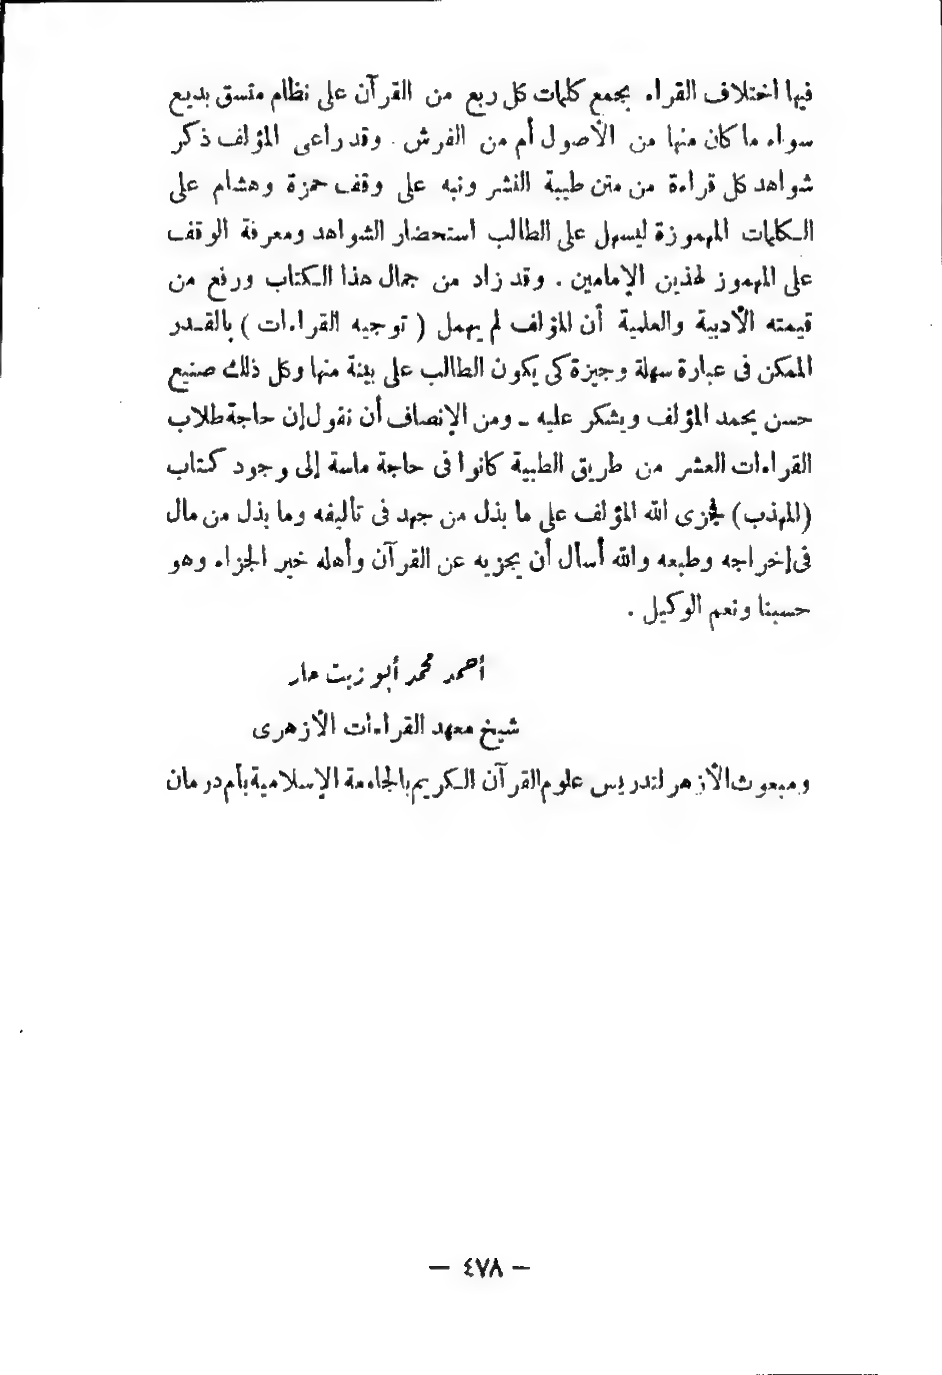 فيها اختلاف القراء بجمع كلمات كل ربع من القرآن على نظام متسق بديع
سواء ما كان منها من الأصول أم من الفرش . وقد راعى المؤلف ذكر
شواهد كل قراءة من متن طيبة النشر ونبه على وقف حمزة وهشام على
الكلمات المهموزة ليسهل على الطالب استحضار الشواهد ومعرفة الوقف
على المهموز لهذين الإمامين . وقد زاد من جمال هذا الكتاب ورفع من
قيمته الأدبية والعلمية أن المؤلف لم يهمل ( توجيه القراءات ) بالقدر
الممكن فى عبارة سهلة وجيزة كى يكون الطالب على بينة منها وكل ذلك صنيع
حسن يحمد المؤلف ويشكر عليه ـ ومن الإنصاف أن نقول إن حاجة طلاب
القراءات العشر من طريق الطيبة كانوا فى حاجة ماسة إلى وجود كتاب
(المهذب) فجزى الله المؤلف على ما بذل من جهد فى تأليفه وما بذل من مال
فى إخراجه وطبعه والله أسأل أن يجزيه عن القرآن وأهله خير الجزاء وهو
حسبنا ونعم الوكيل .
أحمد محمد أبو زيت حار
شيخ معهد القراءات الأزهرى
ومبعوث الأزهر لتدريس علوم القرآن الكريم بالجامعة الإسلامية بأم درمان
— ٤٧٨ —